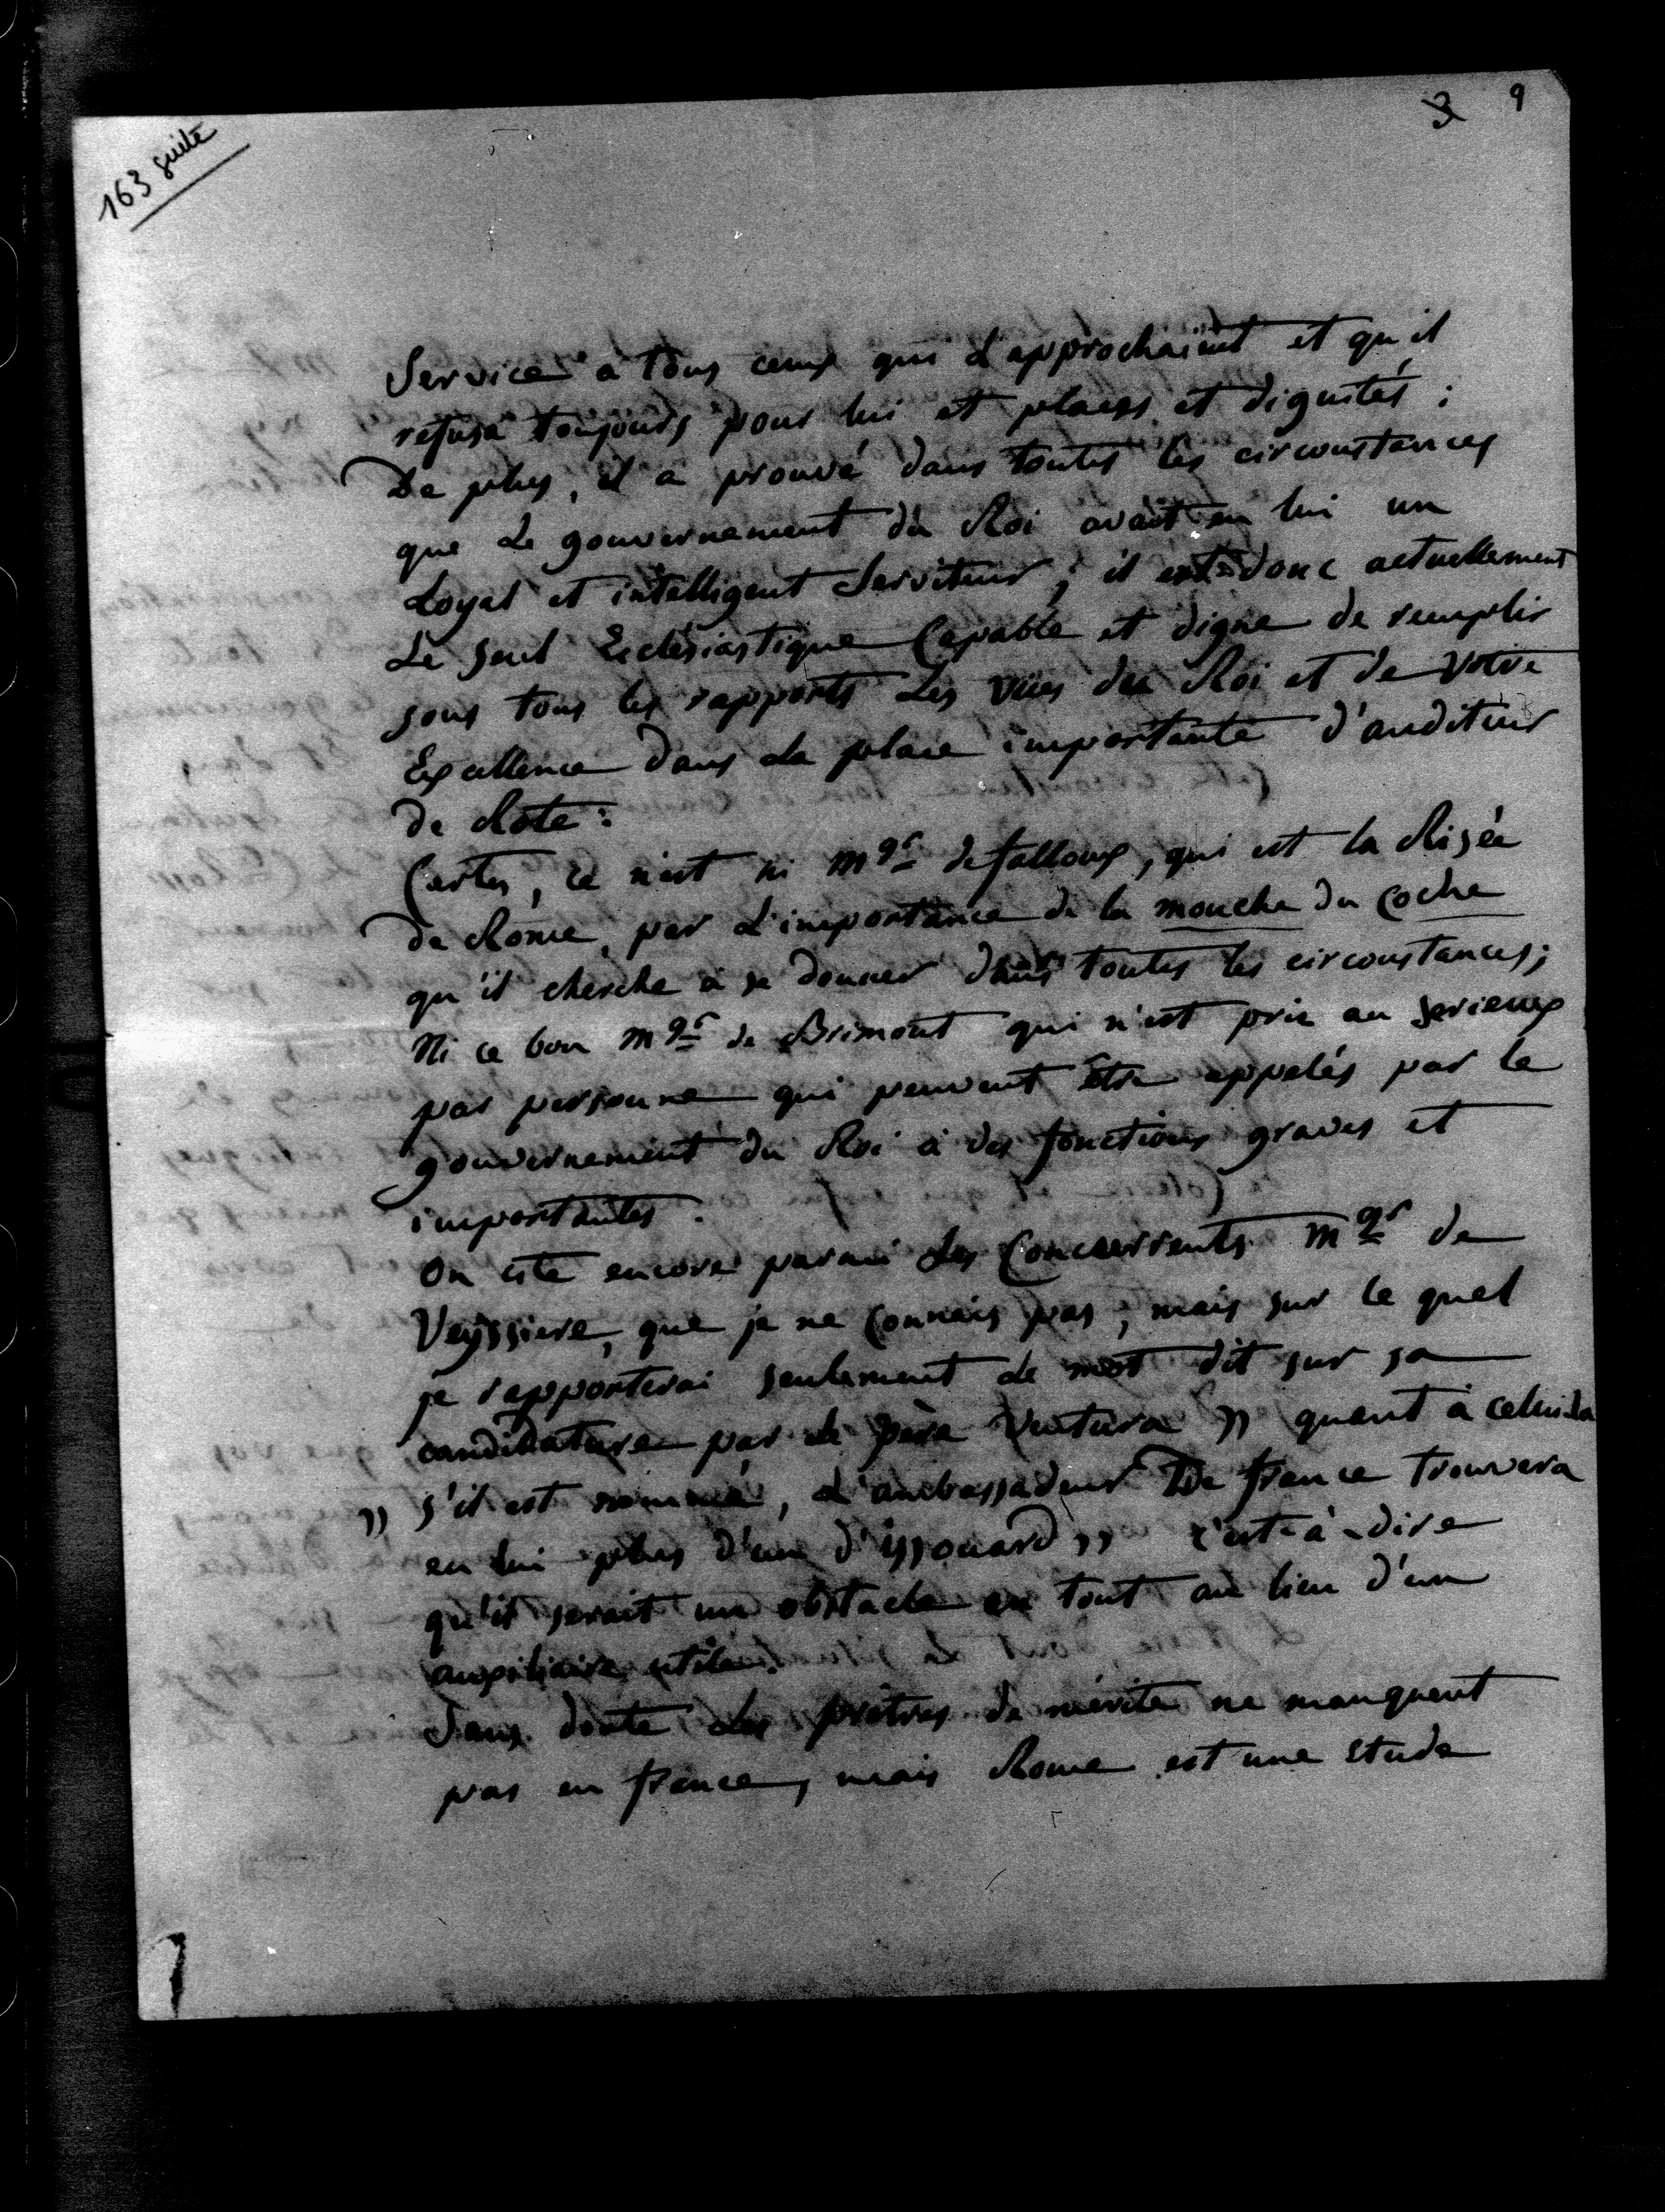 163 suite
3 9
Service à tous ceux qui l'approchaient et qu'il
refusa toujours pour lui et places et dignités :
De plus, il a prouvé dans toutes les circonstances
que Le gouvernement du Roi avait en lui un
Loyal et intelligent Serviteur ; il est donc actuellement
Le seul Ecclésiastique Capable et digne de remplir
sous tous les rapports Les vües du Roi et de Votre
Excellence dans La place importante d'auditeur
de Rote :
Certes, ce n'est ni Mgr de falloux, qui est la Risée
de Rome, par L'importance de la mouche du Coche
qu'il cherche à se donner dans toutes les circonstances ;
Ni ce bon Mgr de Brimont qui n'est pris au serieux
par personne qui peuvent être appelés par le
gouvernement du Roi à des fonctions graves et
importantes.
On cite encore parmi Les Concurrents Mgr de
Veyssiere, que je ne Connais pas, mais sur le quel
je rapporterai seulement Le mot dit sur sa
candidature par Le père Ventura » quant à celui-là
» s'il est nommé, L'ambassadeur De france trouvera
en lui plus d'un d'issouard » c'est-à-dire
qu'il serait un obstacle en tout au lieu d'un
auxiliaire utile.
Sans doute Les prêtres de mérite ne manquent
pas en france, mais Rome est une étude